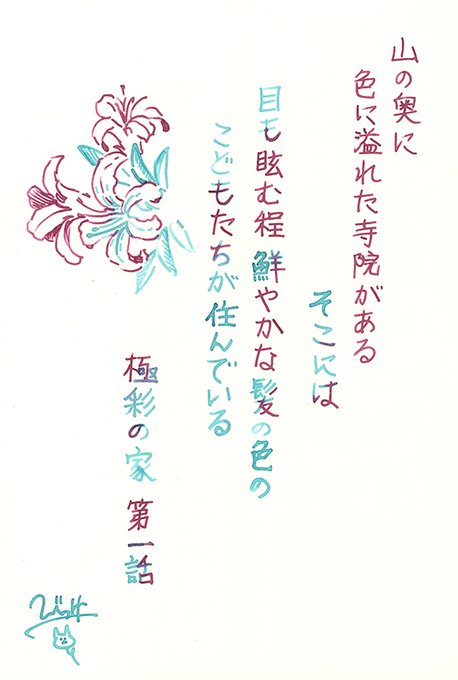 山の奥に
色に溢れた寺院がある
そこには
目も眩む程鮮やかな髪の色の
こどもたちが住んでいる
極彩の家 第一話
びっけ